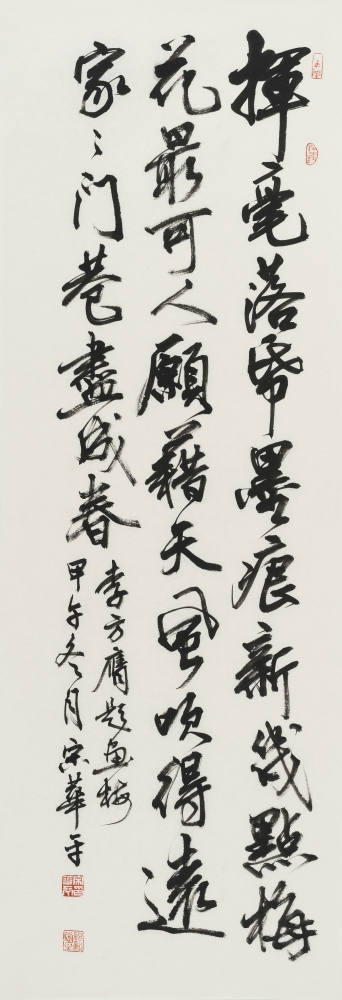 揮毫落帋墨痕新幾點梅
花最可人願藉天風吹得遠
家〻门巷盡成春
李方膺題畫梅
甲午冬月宗華平